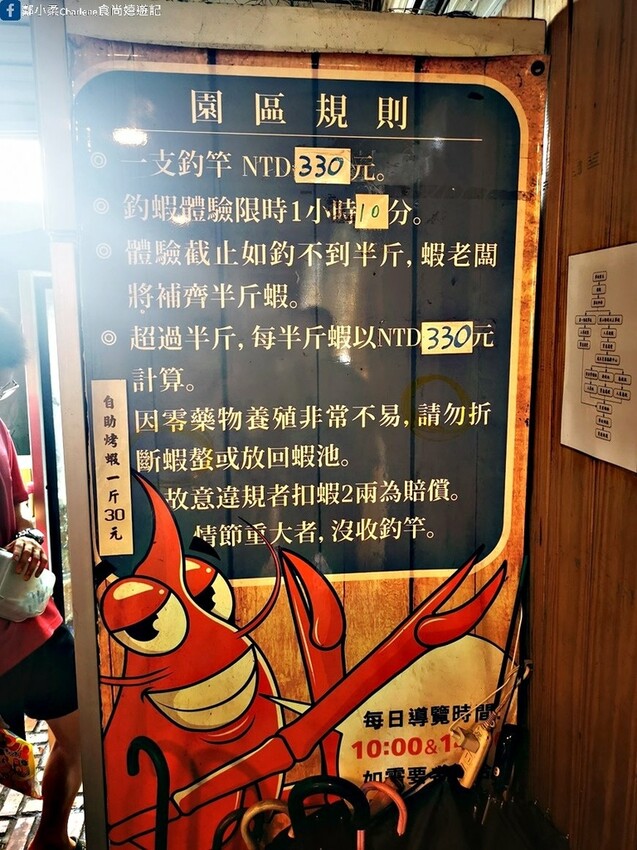 鄭小柔Charlene食尚嬉遊記
園區規則
◎ 一支釣竿 NTD330元。
◎ 釣蝦體驗限時1小時10分。
◎ 體驗截止如釣不到半斤,蝦老闆
將補齊半斤蝦。
◎ 超過半斤,每半斤蝦以NTD330元
計算。
因零藥物養殖非常不易,請勿折
斷蝦螯或放回蝦池。
故意違規者扣蝦2兩為賠償。
情節重大者,沒收釣竿。
自助烤蝦一斤30元
每日導覽時間
10:00&1
如需要